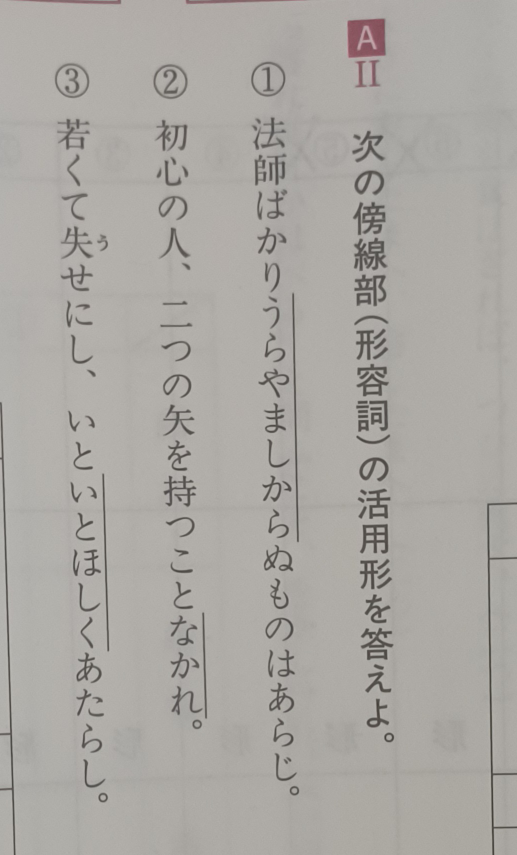 A II 次の傍線部(形容詞)の活用形を答えよ。
① 法師ばかりうらやましからぬものはあらじ。
② 初心の人、二つの矢を持つことなかれ。
③ 若くて失せにし、いといとほしくあたらし。
う